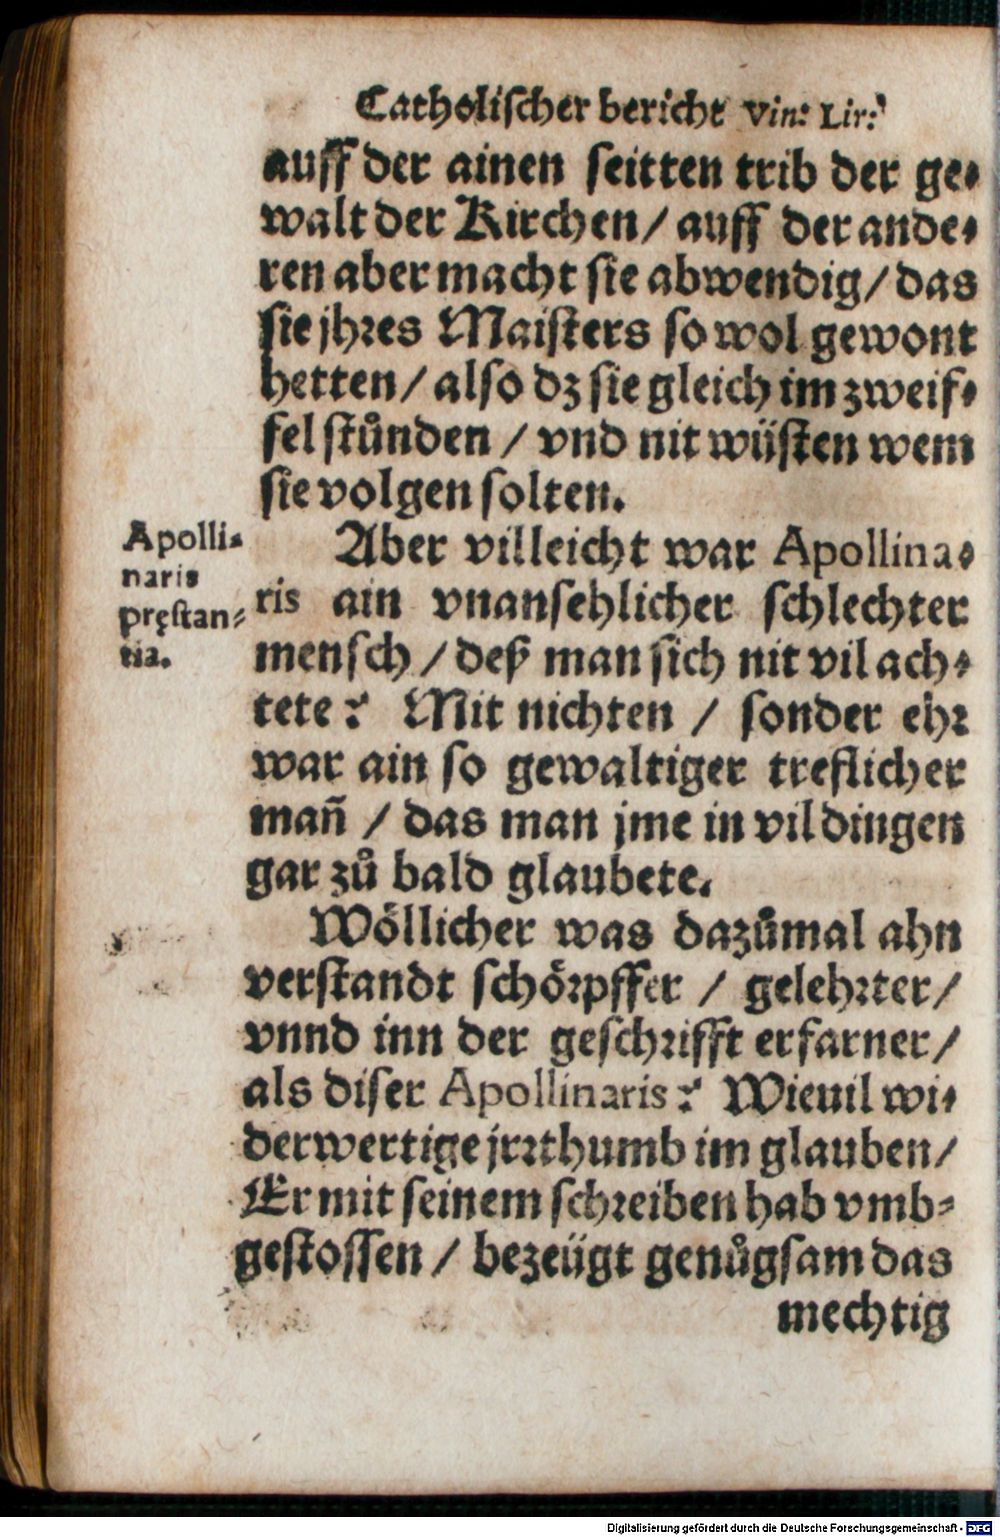 Catholischer bericht Vin: Lir:
auff der ainen seitten trib der ge-
walt der Kirchen / auff der ande-
ren aber macht sie abwendig / das
sie jhres Maisters so wol gewont
hetten / also dz sie gleich im zweif-
fel stůnden / vnd nit wüsten wem
sie volgen solten.
Apolli-
naris
pręstan-
tia.
Aber villeicht war Apollina-
ris ain vnansehlicher schlechter
mensch / deß man sich nit vil ach-
tete? Mit nichten / sonder ehr
war ain so gewaltiger treflicher
mañ / das man jme in vil dingen
gar zů bald glaubete.
Wöllicher was dazůmal ahn
verstandt schörpffer / gelehrter /
vnnd inn der geschrifft erfarner /
als diser Apollinaris? Wieuil wi-
derwertige jrrthumb im glauben /
Er mit seinem schreiben hab vmb-
gestossen / bezeügt genůgsam das
mechtig
Digitalisierung gefördert durch die Deutsche Forschungsgemeinschaft - DFG